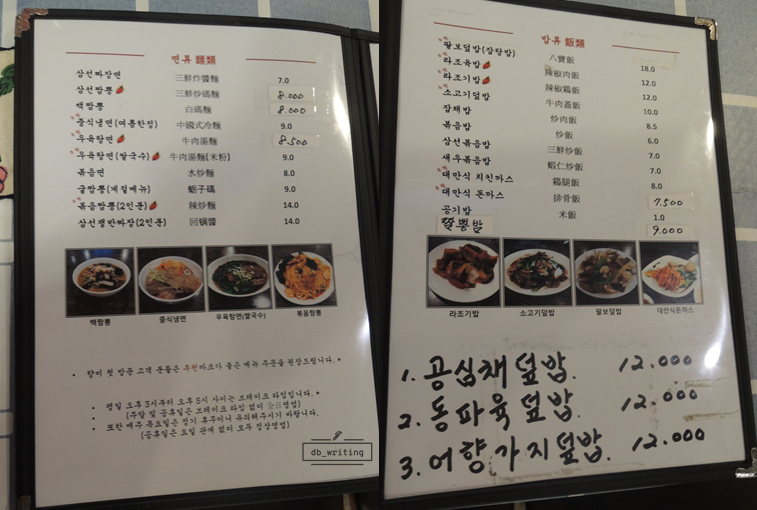 면류 麵類
삼선짜장면 三鮮炸醬麵 7.0
삼선짬뽕 三鮮炒碼麵 8.000
백짬뽕 白碼麵 8.000
중식냉면(여름한정) 中國式冷麵 9.0
우육탕면 牛肉湯麵 8.500
우육탕면(쌀국수) 牛肉湯麵(米粉) 9.0
볶음면 水炒麵 8.0
굴짬뽕(계절메뉴) 蛎子碼 9.0
볶음짬뽕(2인분) 辣炒麵 14.0
삼선쟁반짜장(2인분) 回锅醬 14.0
백짬뽕
중식냉면
우육탕면(쌀국수)
볶음짬뽕
향미 첫 방문 고객 분들은 추천마크가 붙은 메뉴 주문을 권장드립니다. *
평일 오후 3시부터 오후 5시 사이는 브레이크 타임입니다. *
(주말 및 공휴일은 브레이크 타임 없이 全日영업)
또한 매주 목요일은 정기 휴무이니 유의해주시기 바랍니다.
(공휴일은 요일 관계 없이 모두 정상영업)
db_writing
밥류 飯類
팔보덮밥(잡탕밥) 八寶飯 18.0
라조육밥 辣椒肉飯 12.0
라조기밥 辣椒鷄飯 12.0
소고기덮밥 牛肉蓋飯 10.0
잡채밥 炒肉飯 8.5
볶음밥 炒飯 6.0
삼선볶음밥 三鮮炒飯 7.0
새우볶음밥 蝦仁炒飯 7.0
대만식 치킨까스 鷄腿飯 8.0
대만식 돈까스 排骨飯 7.500
공기밥 米飯 1.0
짬뽕밥 9.000
라조기밥
소고기덮밥
팔보덮밥
대만식돈까스
1. 공심채덮밥. 12.000
2. 동파육덮밥. 12.000
3. 어향가지덮밥. 12.000